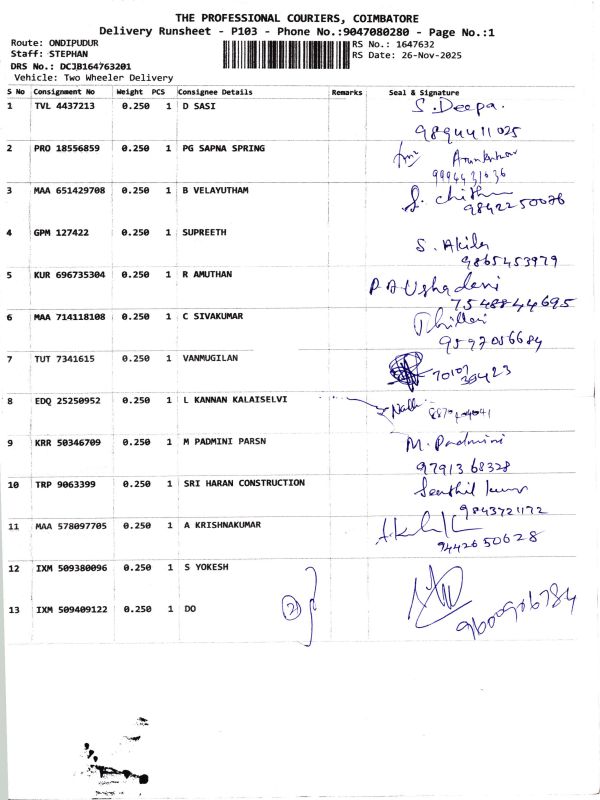 THE PROFESSIONAL COURIERS, COIMBATORE
Delivery Runsheet - P103 - Phone No.:9047080280 - Page No.:1
Route: ONDIPUDUR
RS No.: 1647632
Staff: STEPHAN
RS Date: 26-Nov-2025
DRS No.: DCJB164763201
Vehicle: Two Wheeler Delivery
S No Consignment No Weight PCS Consignee Details Remarks Seal & Signature
1 TVL 4437213 0.250 1 D SASI S. Deepa.
9894411025
2 PRO 18556859 0.250 1 PG SAPNA SPRING
9994431636
3 MAA 651429708 0.250 1 B VELAYUTHAM
9842250076
4 GPM 127422 0.250 1 SUPREETH S. Akila
9865453979
5 KUR 696735304 0.250 1 R AMUTHAN P A Ushadevi
7548844695
6 MAA 714118108 0.250 1 C SIVAKUMAR
9597056684
7 TUT 7341615 0.250 1 VANMUGILAN
8 EDQ 25250952 0.250 1 L KANNAN KALAISELVI
9 KRR 50346709 0.250 1 M PADMINI PARSN M. Padmini
9791368328
10 TRP 9063399 0.250 1 SRI HARAN CONSTRUCTION Senthil kumar
9843721172
11 MAA 578097705 0.250 1 A KRISHNAKUMAR
9442650628
12 IXM 509380096 0.250 1 S YOKESH
13 IXM 509409122 0.250 1 DO 2
9600906784